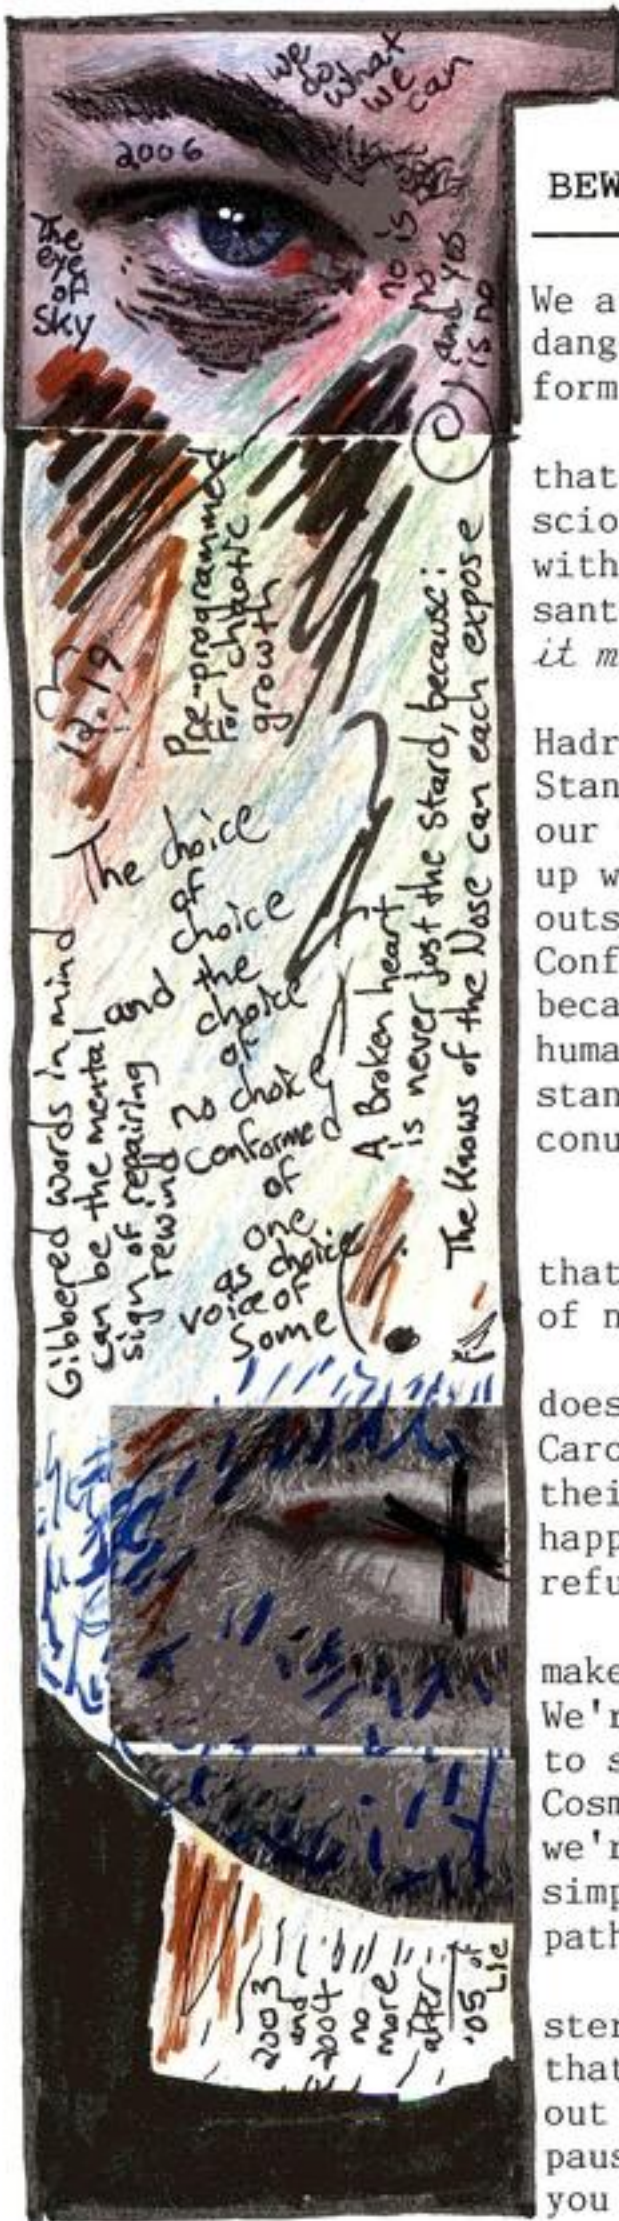 we
do
what
we
can
2006
The
eye
of
Sky
no is
no
and yes
is no
Pre-programmed
for chaotic
growth
12.19
The choice
of
choice
and the
choice
of
no choice
conformed
of
one
as choice
voice of
some
Gibbered words in mind
can be the mental
sign of repairing
rewind
A Broken heart
is never just the stard, because:
The Knows of the Nose can each expose
2003
and
2004
no
more
after
'05 of
Lie
BEW
We a
dang
form
that
scio
with
sant
it m
Hadr
Stan
our
up w
outs
Conf
beca
huma
stan
conu
that
of n
does
Carc
thei
happ
refu
make
We'r
to s
Cosm
we'r
simp
path
ster
that
out
paus
you